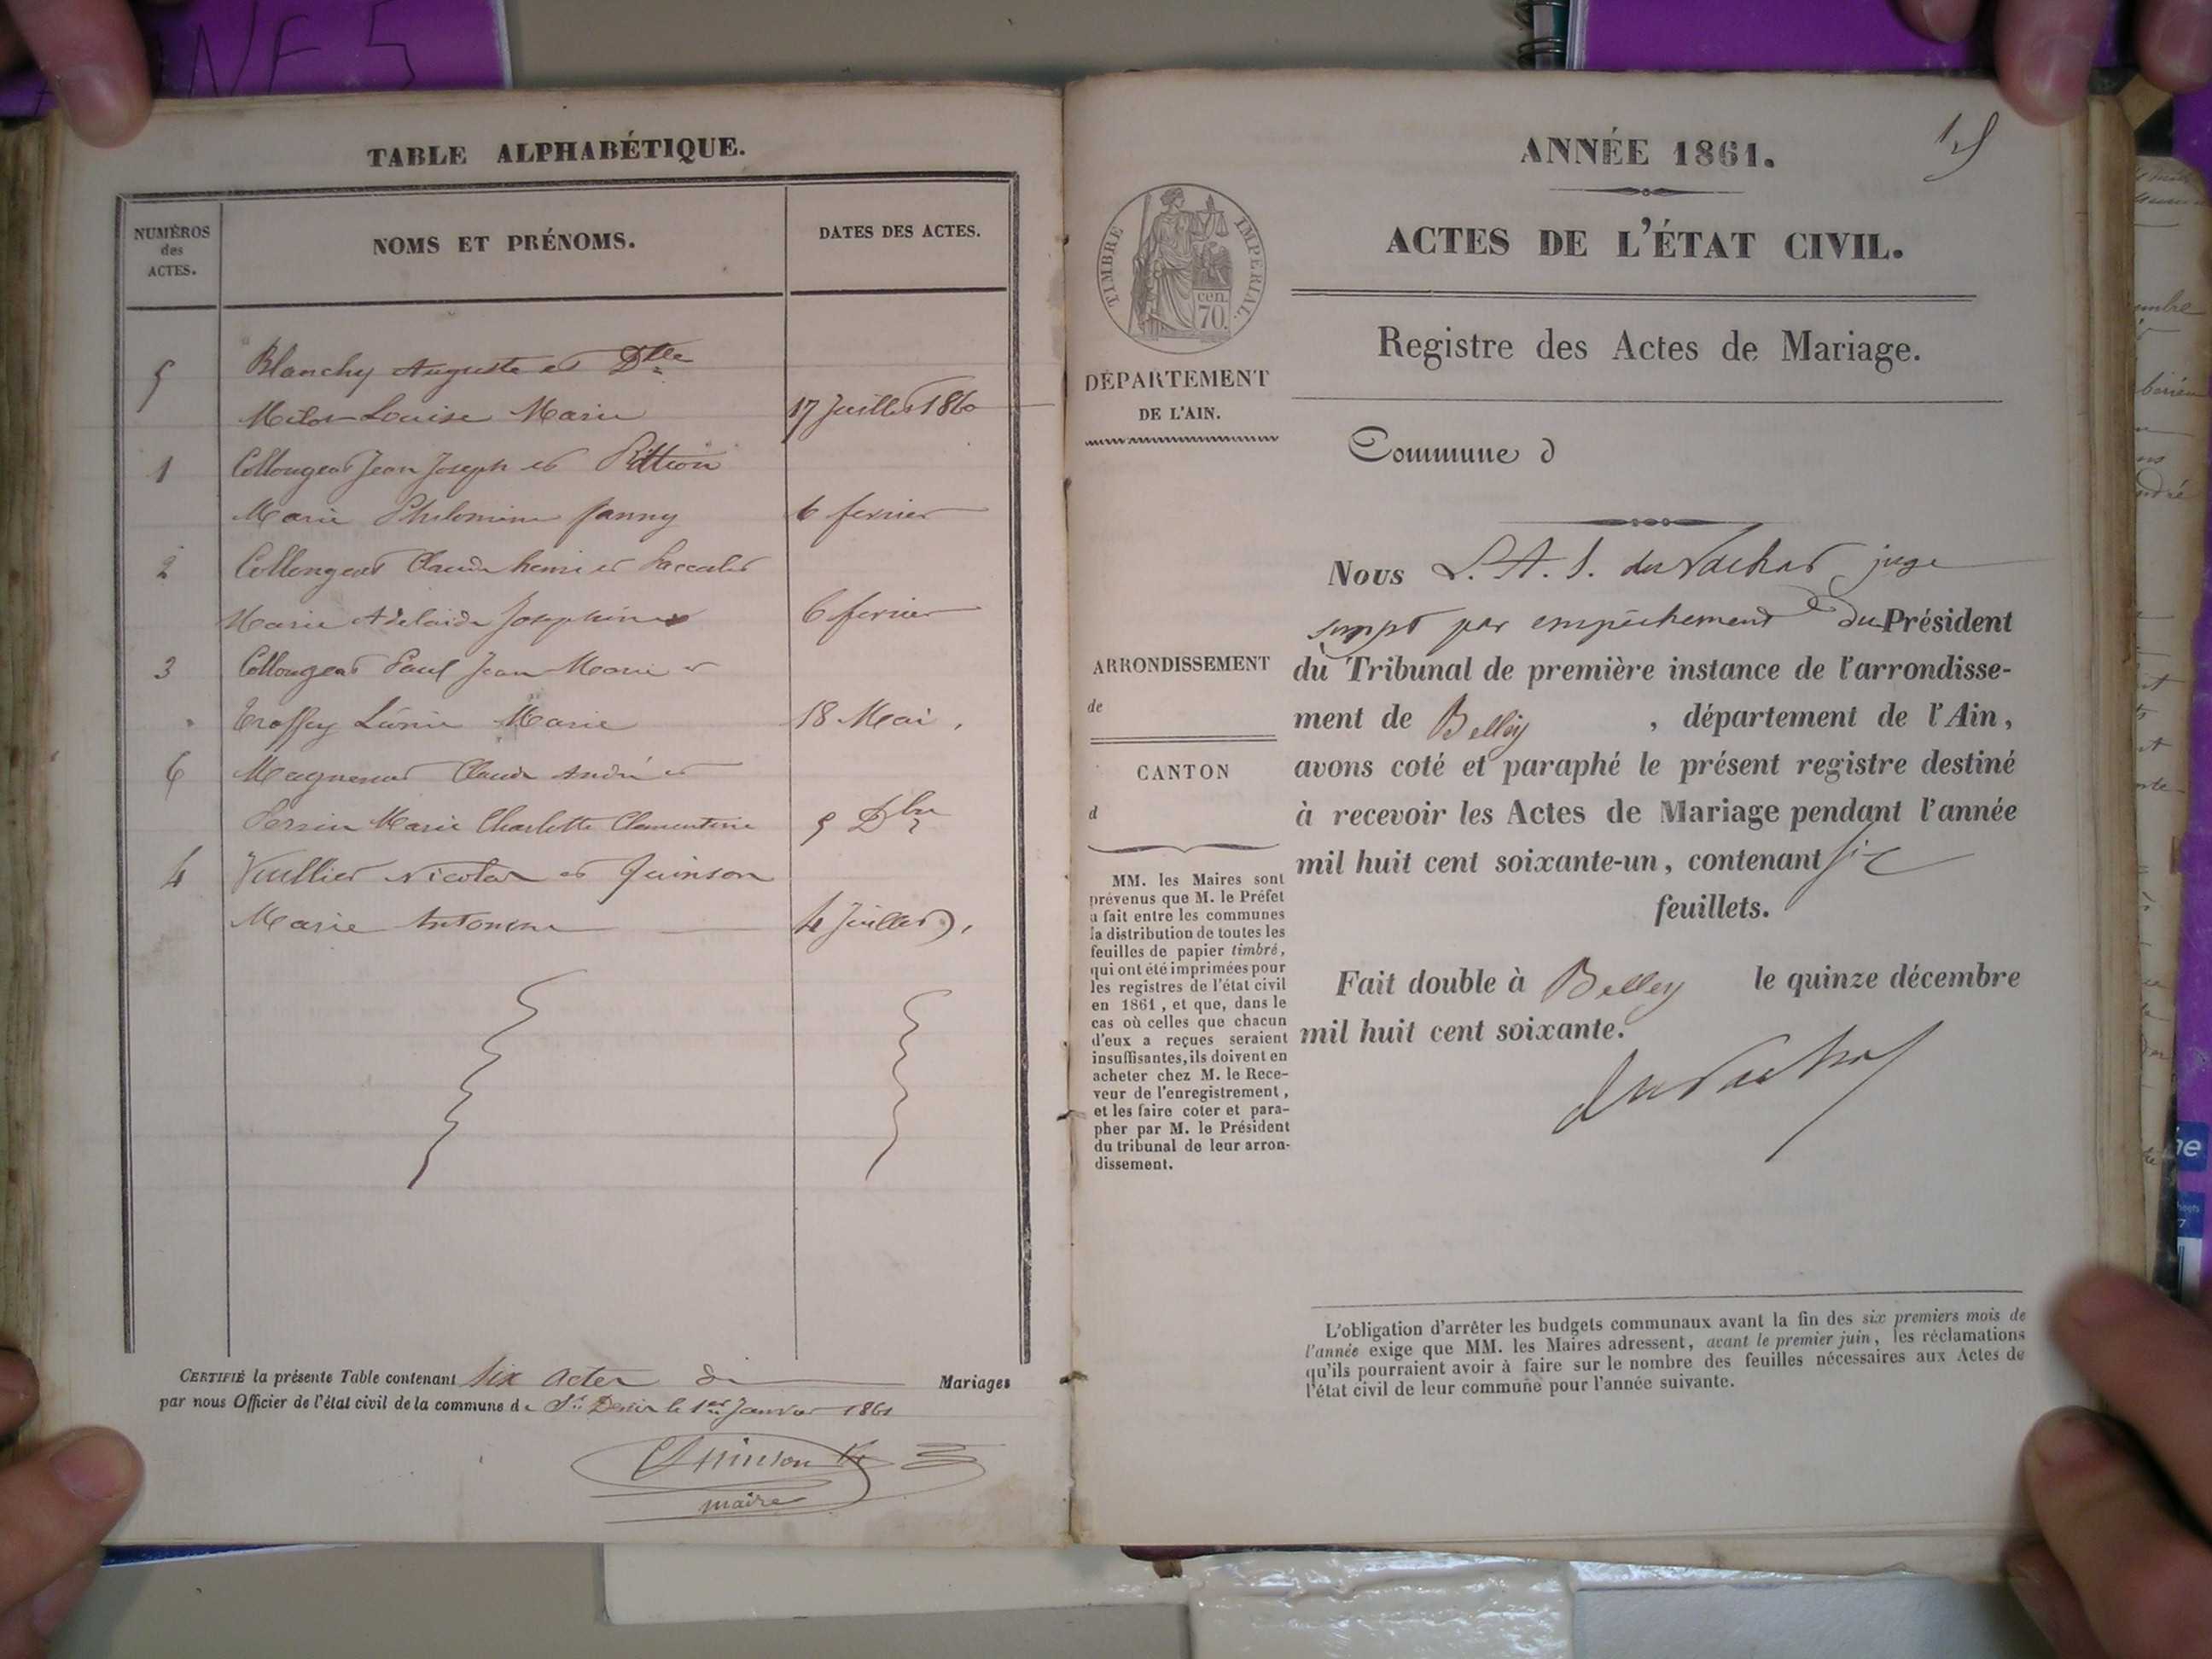 NF 5
TABLE ALPHABÉTIQUE.
NUMÉROS
des
ACTES.
NOMS ET PRÉNOMS.
DATES DES ACTES.
5
Blanchy Auguste et Dlle
Louise Marie
17 Juillet 1860
1
Collonges Jean Joseph et Pittion
Marie Philomine fanny
6 fevrier
2
Collonges Claude henri et
Marie Adelaide Josephine
6 fevrier
3
Collonges Paul Jean Marie et
Marie
18 Mai,
6
Magnenat Claude André et
Perrin Marie Charlotte Clementine
5 Dbre
4
Vullier Nicolas et Quinson
Marie Antoinne
4 Juillet,
CERTIFIÉ la présente Table contenant six actes de Mariages
par nous Officier de l'état civil de la commune de St Denis le 1er Janvier 1861
Quinson
maire
15
ANNÉE 1861.
ACTES DE L'ÉTAT CIVIL.
TIMBRE IMPÉRIAL.
cen.
70.
Registre des Actes de Mariage.
DÉPARTEMENT
DE L'AIN.
Commune d
Nous L. A. S. du Vachat juge
suppt par empêchement du Président
du Tribunal de première instance de l'arrondisse-
ment de Belley, département de l'Ain,
avons coté et paraphé le présent registre destiné
à recevoir les Actes de Mariage pendant l'année
mil huit cent soixante-un, contenant six
feuillets.
Fait double à Belley le quinze décembre
mil huit cent soixante.
du Vachat
ARRONDISSEMENT
de
CANTON
d
MM. les Maires sont
prévenus que M. le Préfet
a fait entre les communes
la distribution de toutes les
feuilles de papier timbré,
qui ont été imprimées pour
les registres de l'état civil
en 1861, et que, dans le
cas où celles que chacun
d'eux a reçues seraient
insuffisantes, ils doivent en
acheter chez M. le Rece-
veur de l'enregistrement,
et les faire coter et para-
pher par M. le Président
du tribunal de leur arron-
dissement.
L'obligation d'arrêter les budgets communaux avant la fin des six premiers mois de
l'année exige que MM. les Maires adressent, avant le premier juin, les réclamations
qu'ils pourraient avoir à faire sur le nombre des feuilles nécessaires aux Actes de
l'état civil de leur commune pour l'année suivante.